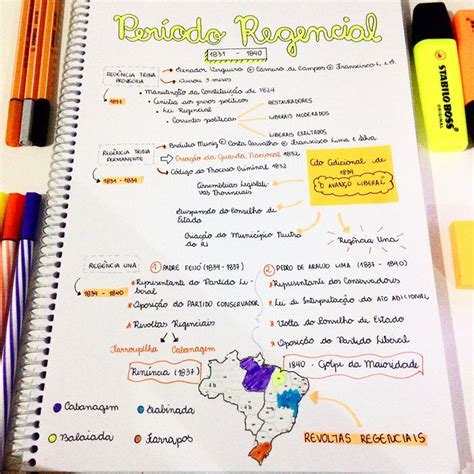 Período Regencial
1831 - 1840
REGÊNCIA TRINA PROVISÓRIA
1831
Senador Vergueiro Carneiro de Campos Francisco L. e S.
Durou 3 meses
Manutenção da Constituição de 1824
Anistia aos presos políticos
Lei Regencial
Correntes políticas
RESTAURADORES
LIBERAIS MODERADOS
LIBERAIS EXALTADOS
REGÊNCIA TRINA PERMANENTE
1831 - 1834
Bráulio Muniz Costa Carvalho Francisco Lima e Silva
Criação da Guarda Nacional 1832
Código de Processo Criminal 1832
Ato Adicional de 1834
"O AVANÇO LIBERAL"
Assembleias Legislat.
nas Provinciais
Suspensão do Conselho de
Estado
Criação do Município Neutro
do RJ
Regência Una
REGÊNCIA UNA
1834 - 1840
1 PADRE FEIJÓ (1834 - 1837)
Representante do Partido Liberal
Oposição do PARTIDO CONSERVADOR
Revoltas Regenciais
Farroupilha Cabanagem
Renúncia (1837)
2 PEDRO DE ARAÚJO LIMA (1837 - 1840)
Representante dos Conservadores
Lei de Interpretação do ATO ADICIONAL
Volta do Conselho de Estado
Oposição do Partido Liberal
1840 - Golpe da Maioridade
Cabanagem
Sabinada
Balaiada
Farrapos
REVOLTAS REGENCIAIS
STABILO BOSS
ORIGINAL